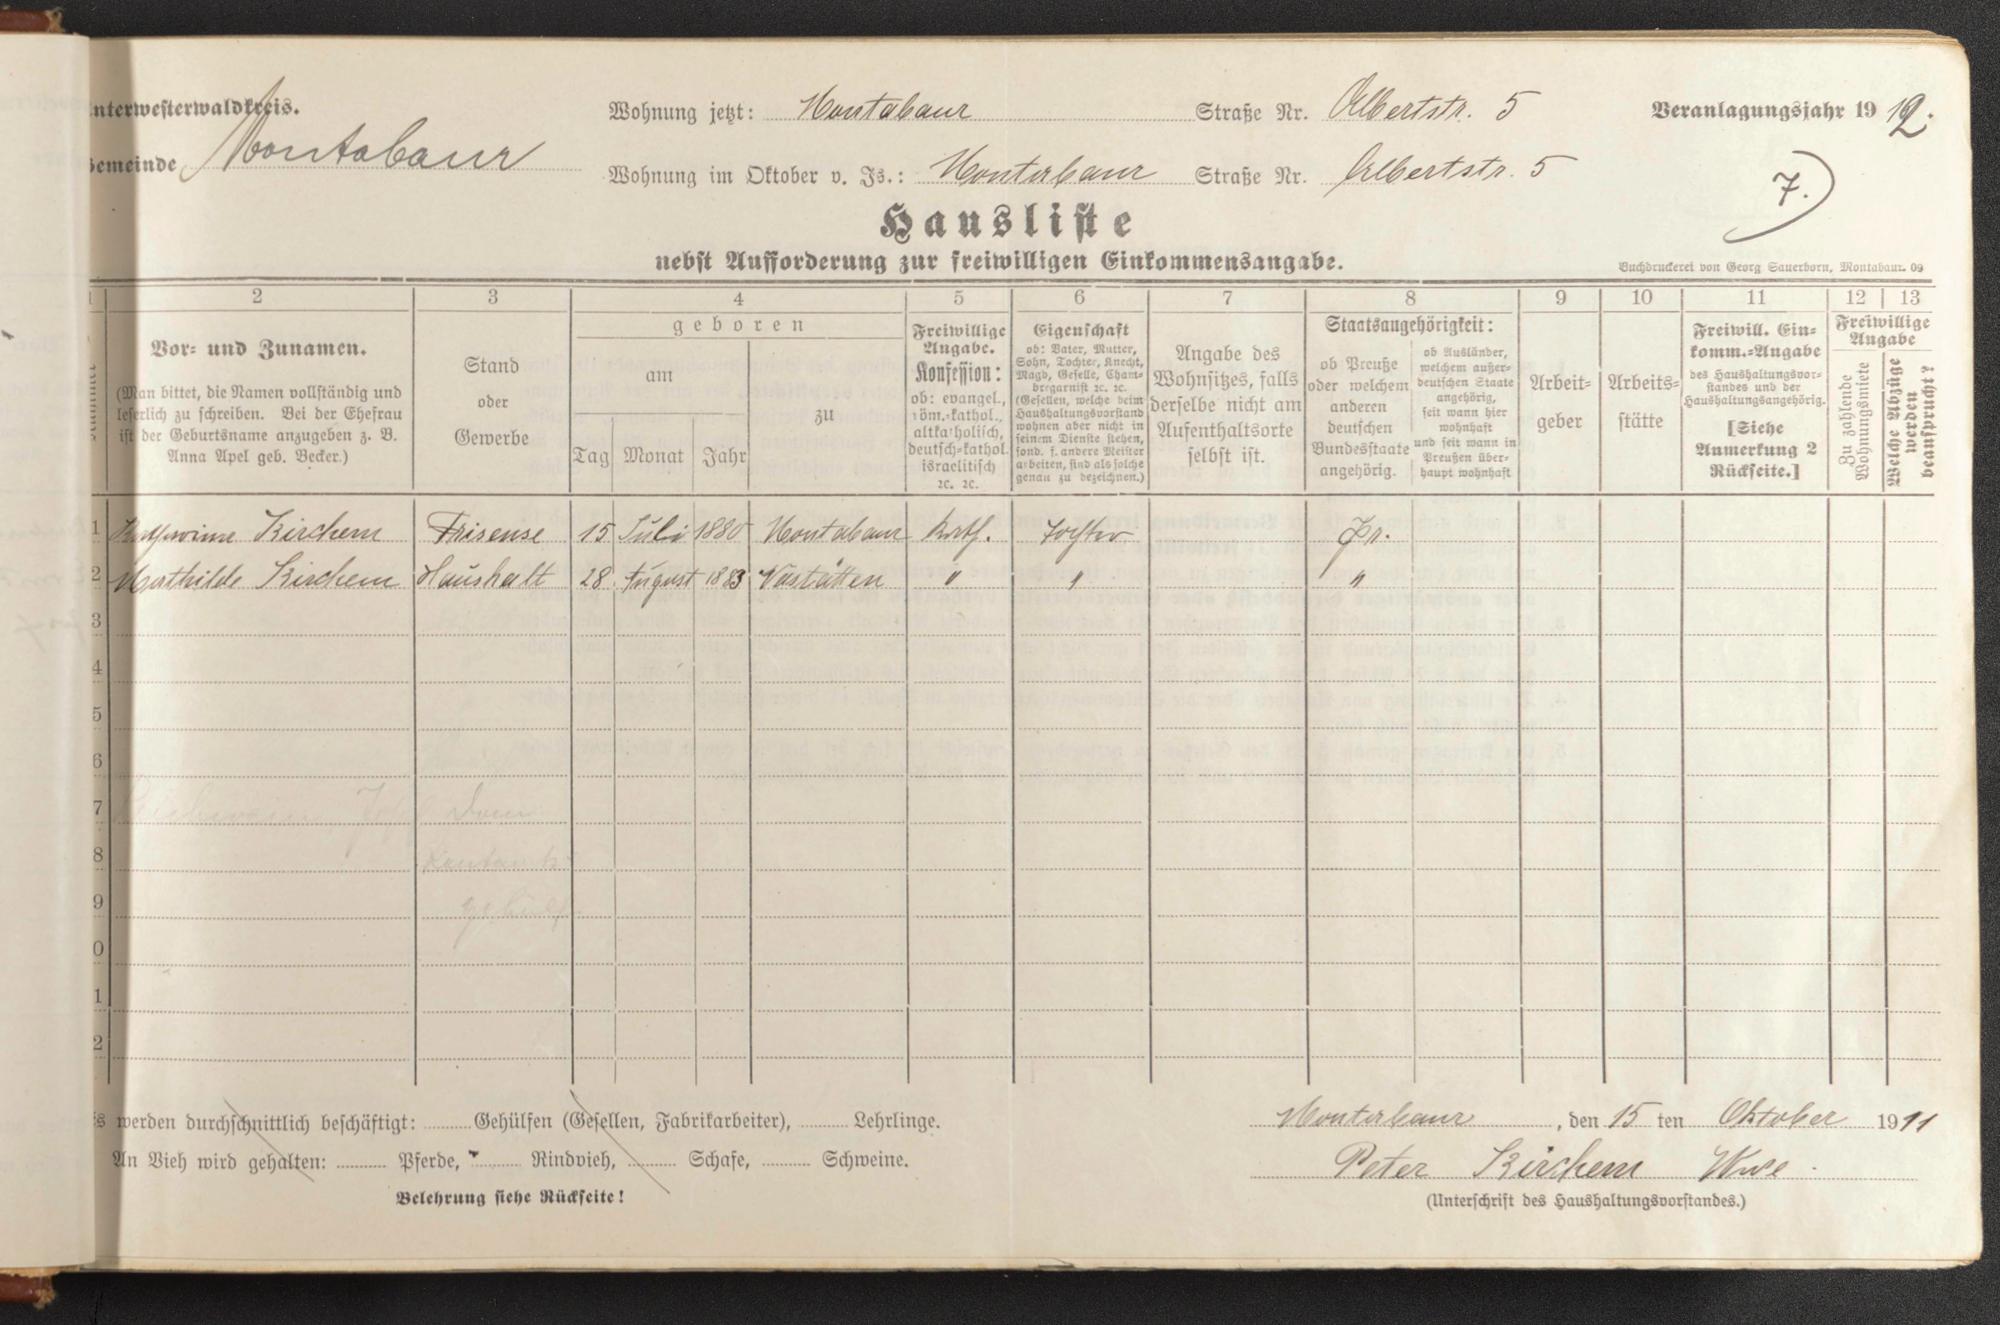 nterwesterwaldkreis.
Gemeinde Montabaur
Wohnung jetzt: Montabaur Straße Nr. Albertstr. 5
Wohnung im Oktober v. Js.: Montabaur Straße Nr. Albertstr. 5
Veranlagungsjahr 1912.
7.
Hausliste
nebst Aufforderung zur freiwilligen Einkommensangabe.
Buchdruckerei von Georg Sauerborn, Montabaur. 09
1 2 3 4 5 6 7 8 9 10 11 12 13
Vor- und Zunamen.
(Man bittet, die Namen vollständig und
leserlich zu schreiben. Bei der Ehefrau
ist der Geburtsname anzugeben z. B.
Anna Apel geb. Becker.)
Stand
oder
Gewerbe
geboren
am
Tag Monat Jahr
zu
Freiwillige
Angabe.
Konfession:
ob: evangel.,
röm.-kathol.,
altkatholisch,
deutsch-kathol.
israelitisch
ꝛc. ꝛc.
Eigenschaft
ob: Vater, Mutter,
Sohn, Tochter, Knecht,
Magd, Geselle, Cham-
bregarnist ꝛc. ꝛc.
(Gesellen, welche beim
Haushaltungsvorstand
wohnen aber nicht in
seinem Dienste stehen,
sond. f. andere Meister
arbeiten, sind als solche
genau zu bezeichnen.)
Angabe des
Wohnsitzes, falls
derselbe nicht am
Aufenthaltsorte
selbst ist.
Staatsangehörigkeit:
ob Preuße
oder welchem
anderen
deutschen
Bundesstaate
angehörig.
ob Ausländer,
welchem außer-
deutschen Staate
angehörig,
seit wann hier
wohnhaft
und seit wann in
Preußen über-
haupt wohnhaft
Arbeit-
geber
Arbeits-
stätte
Freiwill. Ein-
komm.-Angabe
des Haushaltungsvor-
standes und der
Haushaltungsangehörig.
[Siehe
Anmerkung 2
Rückseite.]
Freiwillige
Angabe
Zu zahlende
Wohnungsmiete
Welche Abzüge
werden
beansprucht?
1 Kirchem Frisense 15 Juli 1880 Montabaur kath. Tochter Pr.
2 Mathilde Kirchem Haushalt 28. August 1883 Nastätten " " "
3
4
5
6
7
8
9
0
1
2
Es werden durchschnittlich beschäftigt: Gehülfen (Gesellen, Fabrikarbeiter), Lehrlinge.
An Vieh wird gehalten: Pferde, Rindvieh, Schafe, Schweine.
Belehrung siehe Rückseite!
Montabaur, den 15 ten Oktober 1911
Peter Kirchem Wwe.
(Unterschrift des Haushaltungsvorstandes.)